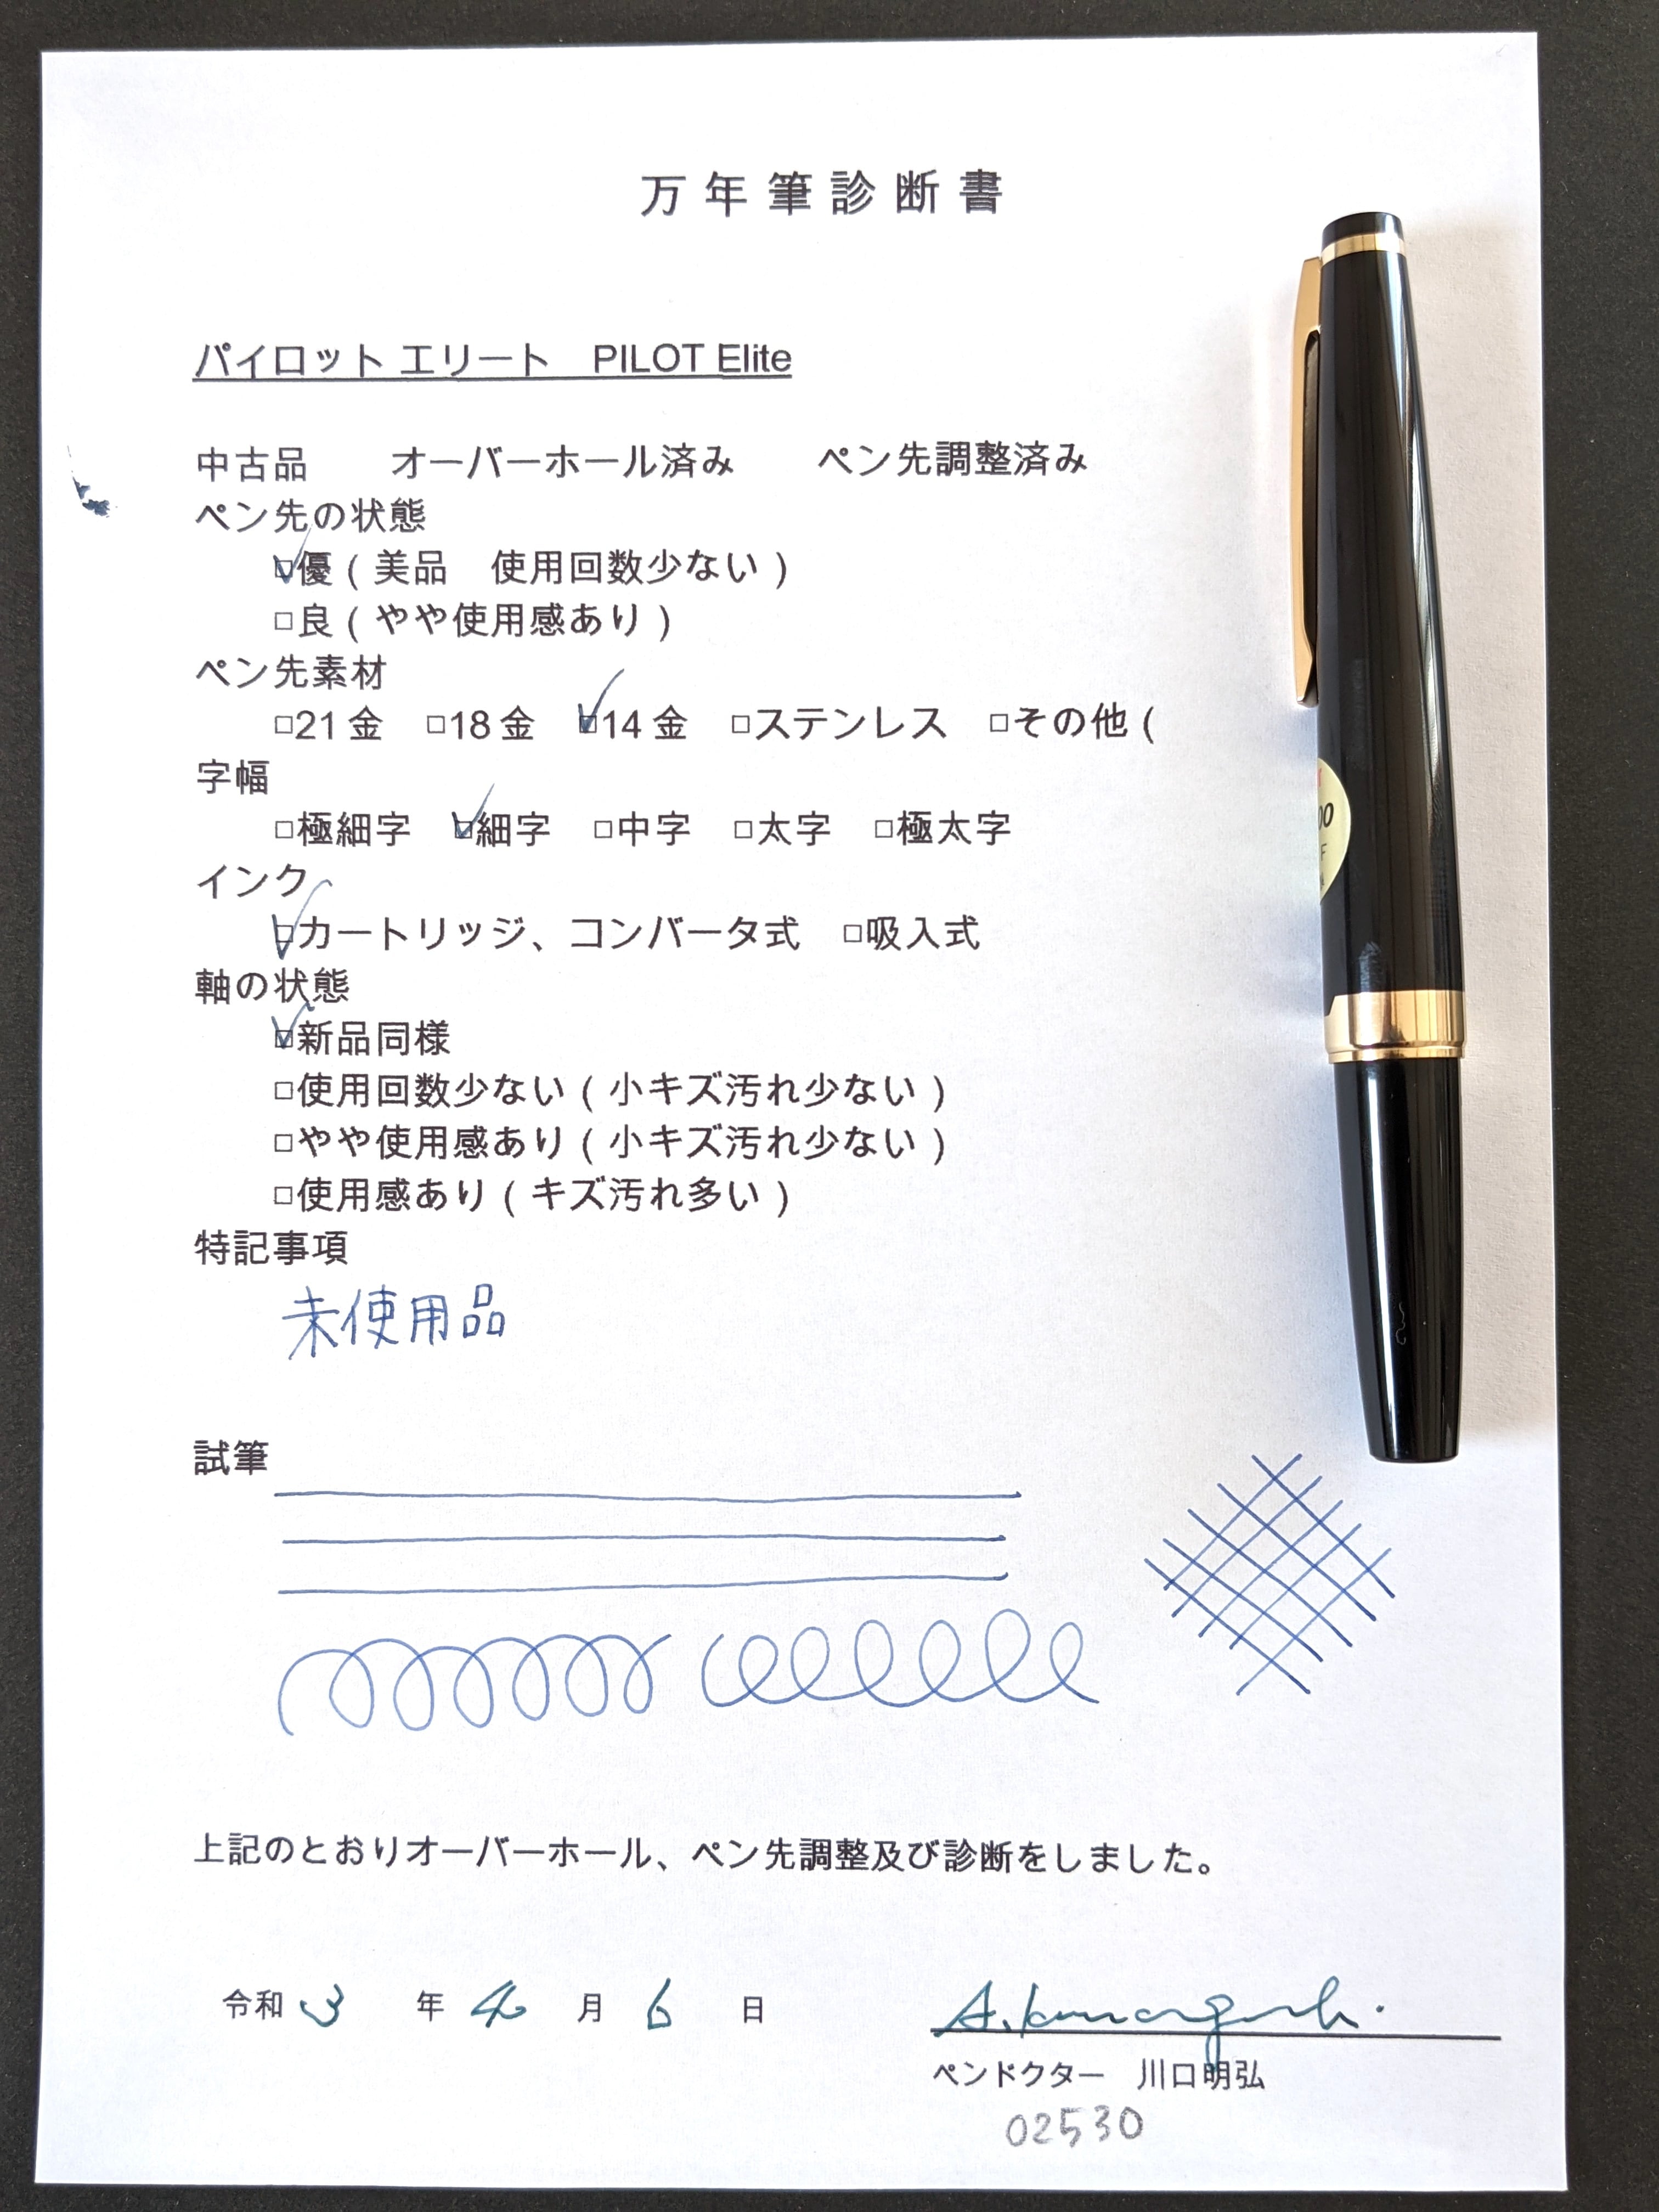 万年筆診断書
パイロット エリート　PILOT Elite
中古品　　オーバーホール済み　　ペン先調整済み
ペン先の状態
☑優（美品　使用回数少ない）
□良（やや使用感あり）
ペン先素材
□21金　□18金　☑14金　□ステンレス　□その他（
字幅
□極細字　☑細字　□中字　□太字　□極太字
インク
☑カートリッジ、コンバータ式　□吸入式
軸の状態
☑新品同様
□使用回数少ない（小キズ汚れ少ない）
□やや使用感あり（小キズ汚れ少ない）
□使用感あり（キズ汚れ多い）
特記事項
未使用品
試筆
上記のとおりオーバーホール、ペン先調整及び診断をしました。
令和 3 年 4 月 6 日
A.Kawaguchi.
ペンドクター　川口明弘
02530
00
F